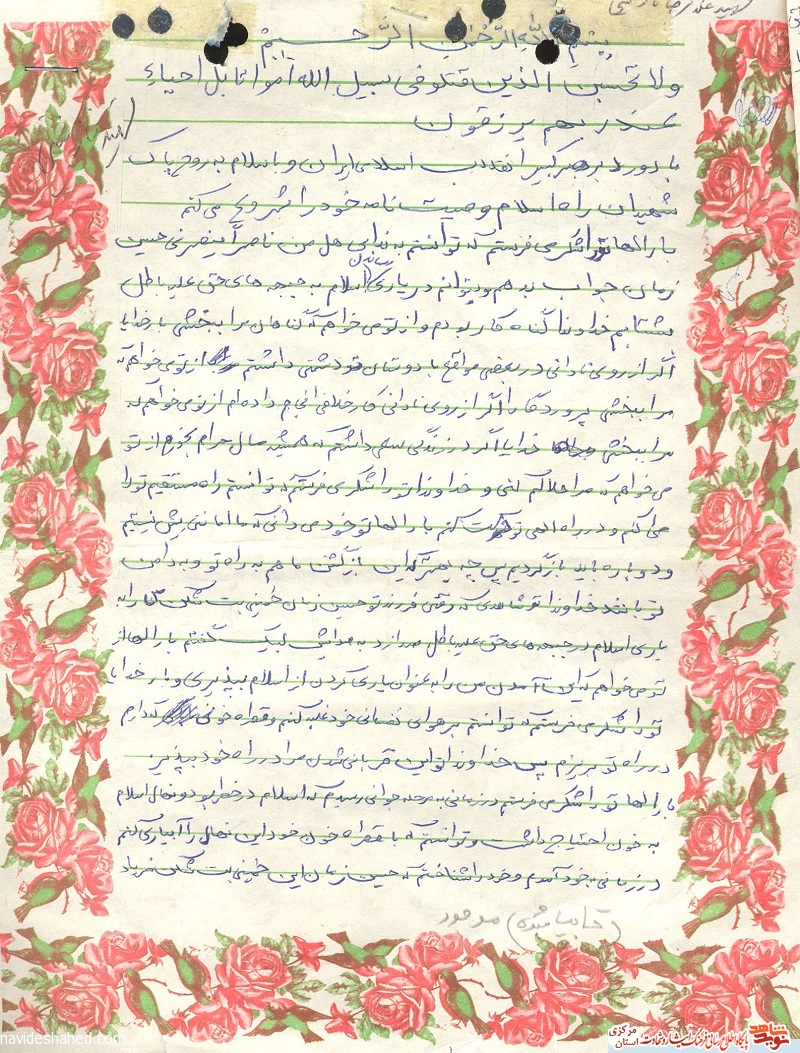 بسم الله الرحمن الرحیم
ولا تحسبن الذین قتلو فی سبیل الله امواتا بل احیاء
عند ربهم یرزقون
با درود بر رهبر کبیر انقلاب اسلامی ایران و با سلام به روح پاک
شهیدان راه اسلام وصیت نامه خود را شروع می کنم
بارالها تو را شکر می فرستم که توانستم به ندای هل من ناصراً ینصرنی حسین
زمان جواب بدهم و بتوانم در یاری اسلام به جبهه های حق علیه باطل
بشتابم خداوندا گناه کار بودم و از تو می خواهم که گناهان مرا ببخشی بار خدایا
اگر از روی نادانی در بعضی مواقع با دوستان خود دشمنی داشتم از تو می خواهم که
مرا ببخشی پروردگارا اگر از روی نادانی کار خلافی انجام داده ام از تو می خواهم که
مرا ببخشی خدایا اگر در زندگی سعی داشتم که همیشه مال حرام بخورم از تو
می خواهم که مرا هلاکم کنی و خداوندا تو را شکر می فرستم که توانستم راه مستقیم تو را
پیدا کنم و در راه الهی تو حرکت کنم بارالها تو خود می دانی که ما امانتی بیش نیستیم
و دوباره باید بازگردیم پس چه بهتر که این بازگشتن ما هم به راه تو و به دامن
تو باشد خداوندا تو شاهدی که وقتی فرزند تو حسین زمان خمینی بت شکن ما را به
یاری اسلام در جبهه های حق علیه باطل صدا زد به صدایش لبیک گفتم بارالها از
تو می خواهم که این آمدن من را به عنوان یاری کردن از اسلام بپذیری و بار خدایا
تو را شکر می فرستم که توانستم بر هوای نفسانی خود غلبه کنم و قطره خونی که دارم
در راه تو بریزم پس خداوندا تو این قربانی شدن مرا در راه خود بپذیر
بارالها تو را شکر می فرستم در زمانی به مرحله جوانی رسیدم که اسلام در خطر بود و نهال اسلام
به خون احتیاج داشت و توانستم که با قطره خون خود این نهال را آبیاری کنم
در زمانی به خود آمدم و خود را شناختم که حسین زمان این خمینی بت شکن فریاد
موجود
navideshahed.com
نوید شاهد
استان مرکزی